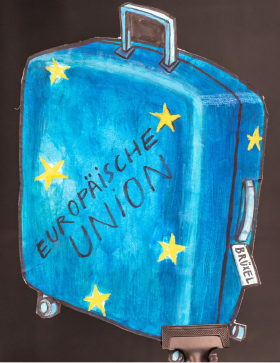 EUROPÄISCHE
UNION
BRÜXEL